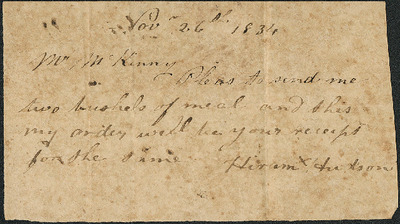 Novr 26th 1834
Mr McKinny
Pleas to send me
two bushels of meal and this
my order will be your receipt
for the same Hiram Hutson